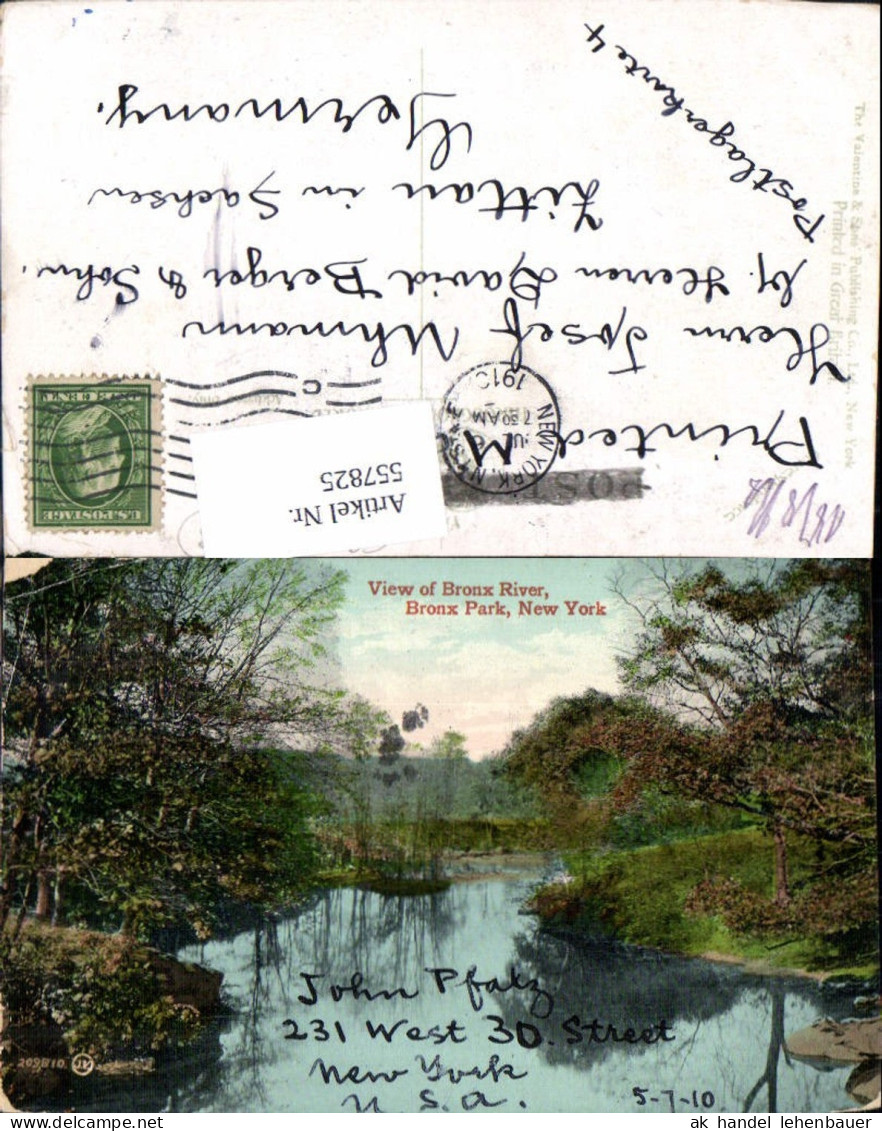 Printed M
Herrn Josef Uhmann
bz. Herren David Berger & Sohn.
Zittau in Sachsen
Germany.
Postlagerkarte 4
The Valentine & Sons' Publishing Co., Ltd., New York
Printed in Great
NEW YORK, N.Y.
7 30 AM
1910
C
U.S. POSTAGE
Artikel Nr.
557825
View of Bronx River,
Bronx Park, New York
John Pfalz
231 West 30. Street
New York
U.S.A.
5-7-10
209810 JV
ak handel lehenbauer